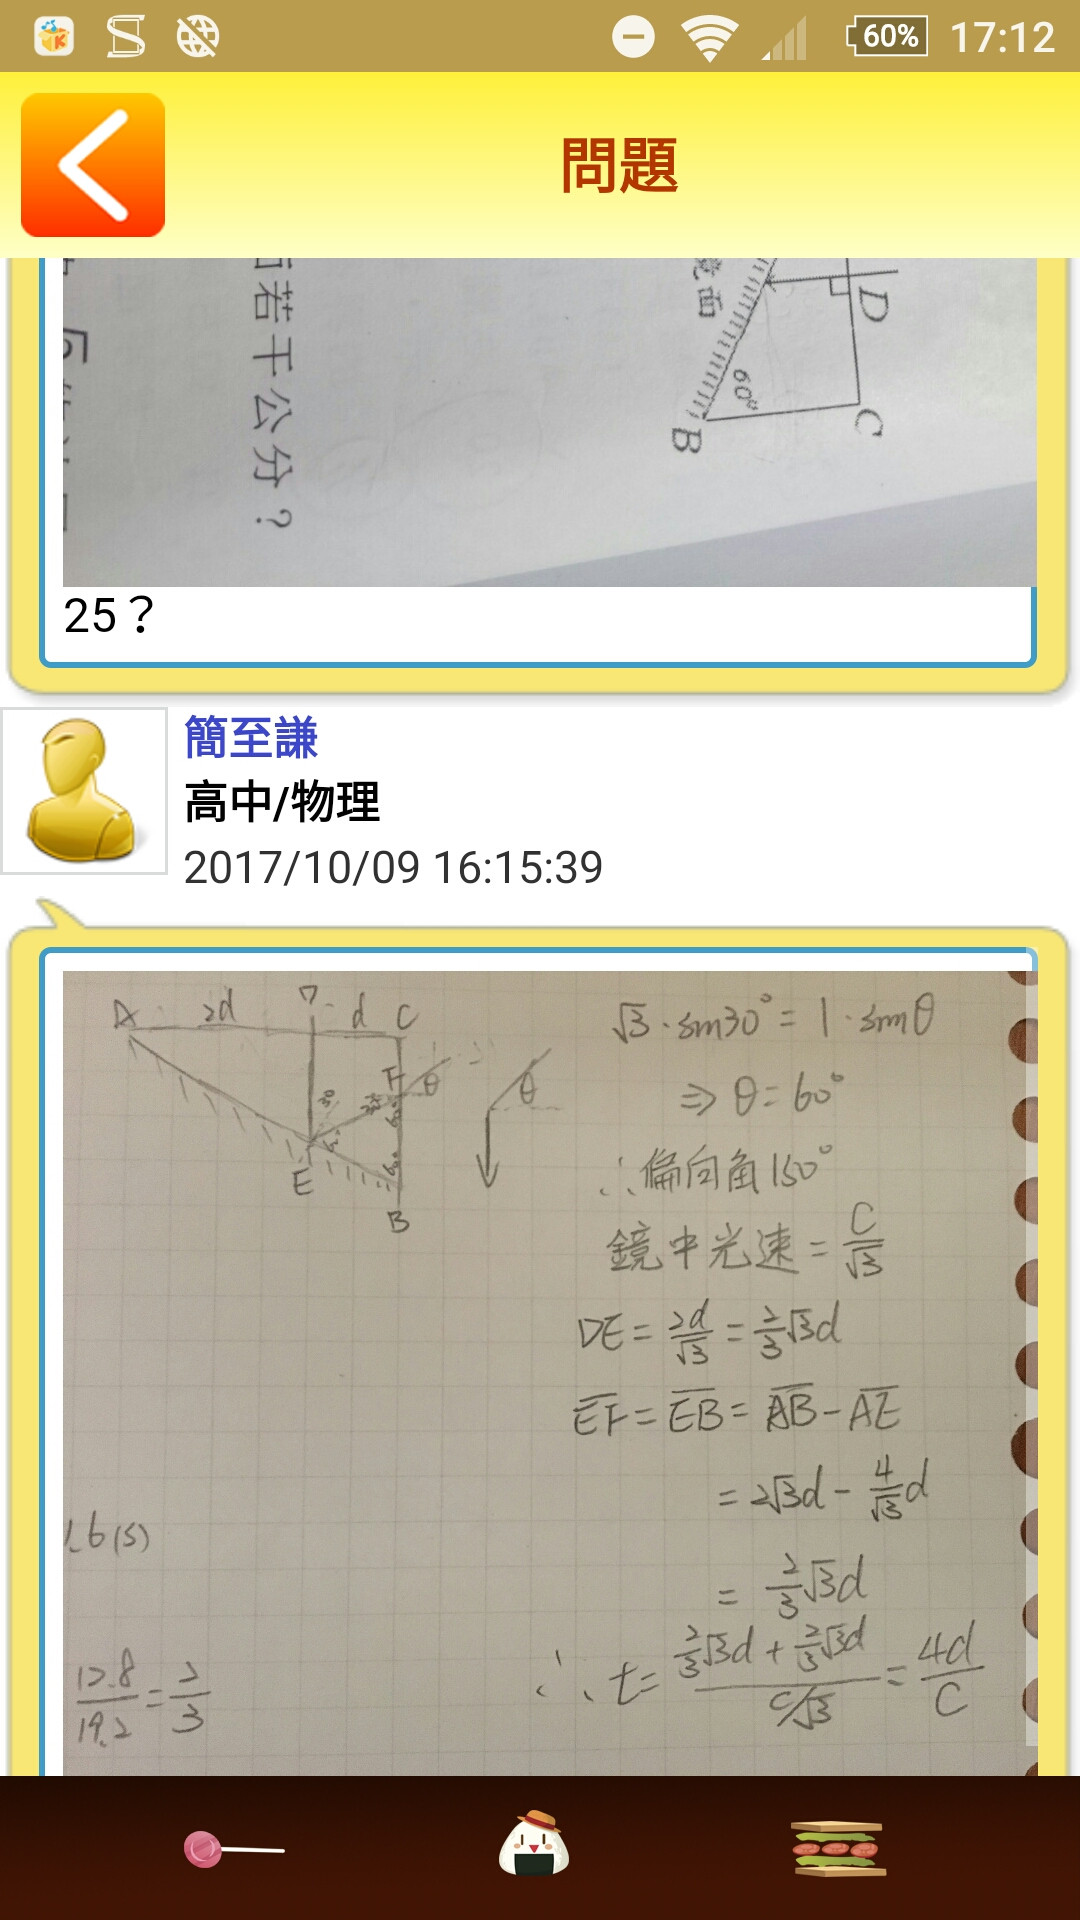 60% 17:12
問題
若干公分？
鏡面
D
60°
C
B
25？
簡至謙
高中/物理
2017/10/09 16:15:39
A 2d D d C
F θ θ
30
60°
60°
E
B
√3·sin30°=1·sinθ
⇒θ=60°
∴偏向角150°
鏡中光速=C/√3
DE=2d/√3=2/3√3d
EF=EB=AB-AE
=2√3d-4/√3d
=2/3√3d
∴t=(2/3√3d+2/3√3d)/(C/√3)=4d/C
1.6(s)
12.8/19.2=2/3